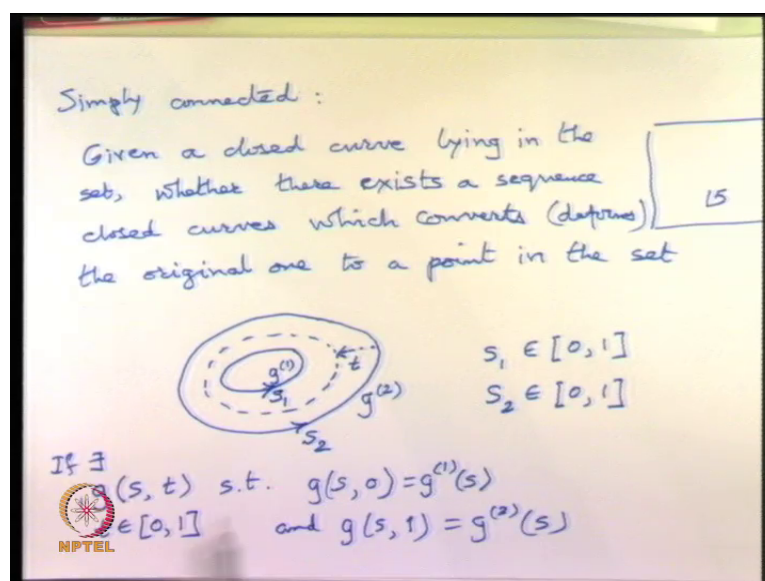 Simply connected :
Given a closed curve lying in the
set, whether there exists a sequence
closed curves which converts (deforms)
the original one to a point in the set
15
g⁽¹⁾
S₁
t
g⁽²⁾
S₂
S₁ ∈ [0, 1]
S₂ ∈ [0, 1]
If ∃
g(s, t) s.t. g(s, 0) = g⁽¹⁾(s)
∈ [0, 1] and g(s, 1) = g⁽²⁾(s)
NPTEL